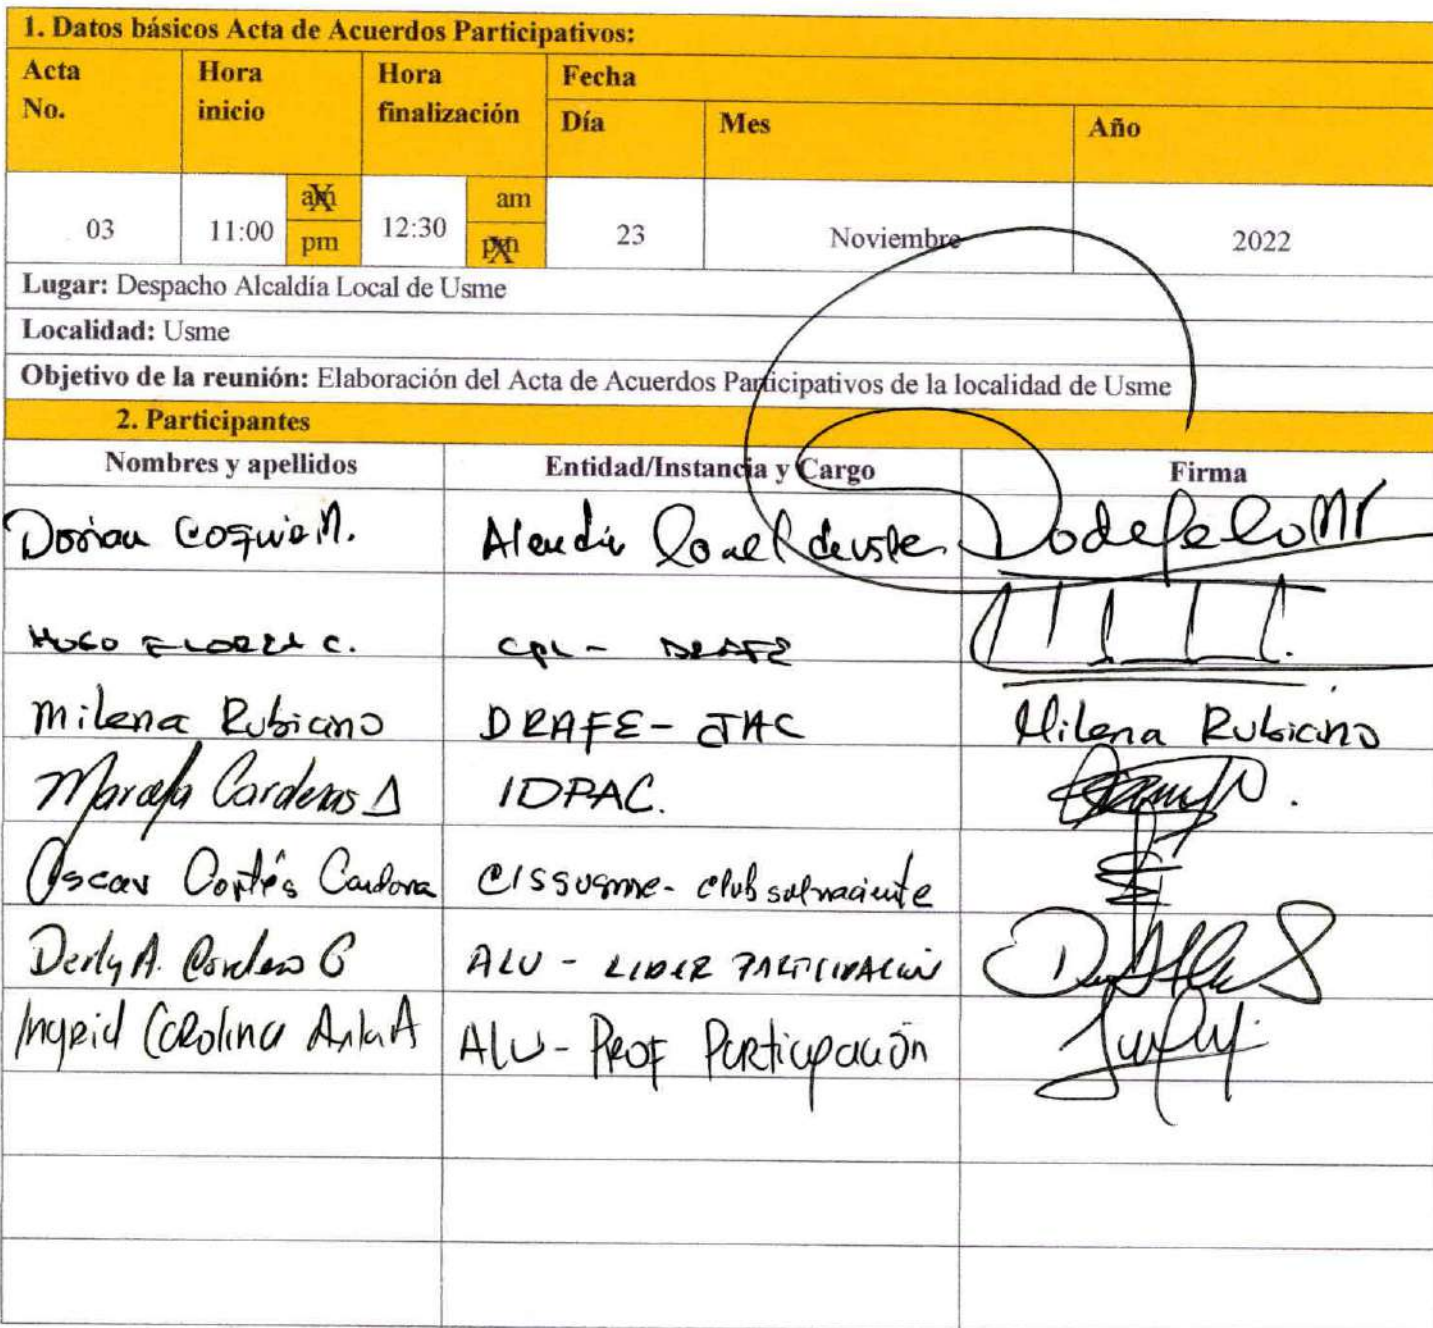 1. Datos básicos Acta de Acuerdos Participativos:
Acta No. Hora inicio Hora finalización Fecha
Día Mes Año
03 11:00 am pm 12:30 am pm 23 Noviembre 2022
Lugar: Despacho Alcaldía Local de Usme
Localidad: Usme
Objetivo de la reunión: Elaboración del Acta de Acuerdos Participativos de la localidad de Usme
2. Participantes
Nombres y apellidos Entidad/Instancia y Cargo Firma
Dorian
HUGO C. CPL - DRAFE
Milena Rubiano DRAFE - JAC Milena Rubiano
Marcela Cardenas IDPAC.
Oscar Cortés Cardona CISSUSME - Club solnaciente
Derly A. ALU - LIDER PARTICIPACIÓN
Ingrid Carolina ALU - Prof Participación